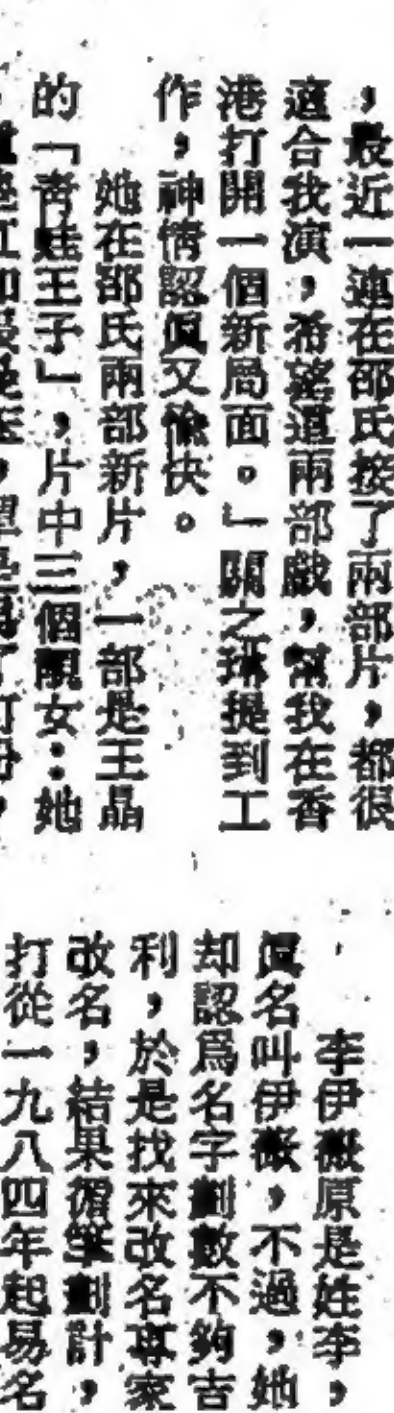 ，最近一連在邵氏接了兩部片，都很
適合我演，希望這兩部戲，幫我在香
港打開一個新局面。」關之琳提到工
作，神情認眞又愉快。
她在邵氏兩部新片，一部是王晶
的「靑蛙王子」，片中三個靚女：她
李伊薇原是姓李，
眞名叫伊薇，不過，她
却認爲名字劃數不夠吉
利，於是找來改名專家
改名，結果循筆劃計，
打從一九八四年起易名